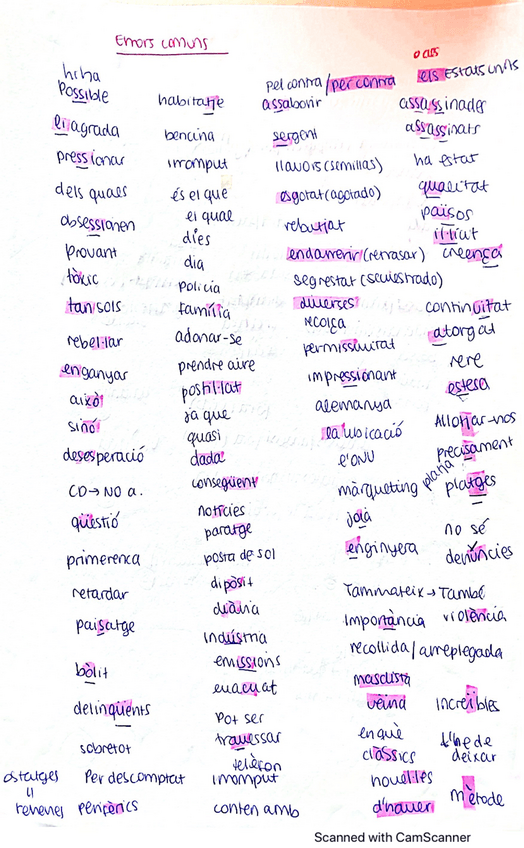 Errors comuns
hi ha
possible
li agrada
pressionar
dels quals
obsessionen
provant
tòxic
tan sols
rebel·lar
enganyar
això
sinó
desesperació
CD → NO a.
qüestió
primerenca
retardar
paisatge
bòlit
delinqüents
sobretot
Per descomptat
ostatges
||
rehenes
perifèrics
habitatje
bencina
irromput
és el que
el qual
dies
dia
policia
família
adonar-se
prendre aire
postil·lat
ja que
quasi
dada
consegüent
notícies
paratge
posta de sol
dipòsit
diària
indústria
emissions
evacuat
Pot ser
travessar
telèfon
irromput
conten amb
pel contra/per contra
assaborir
sergent
llavors (semillas)
esgotat (agotado)
rebutjat
endarrerir (retrasar)
segrestat (secuestrado)
diverses
recolça
permissivitat
impressionant
alemanya
la ubicació
l'ONU
màrqueting
joia
enginyera
Tanmateix → També
Importància
recollida/arreplegada
masclista
veïna
en què
clàssics
novel·les
d'haver
o EUS
els Estats units
assassinades
assassinats
ha estat
qualitat
països
il·lícit
creença
continuïtat
atorgat
rere
estesa
Allotjar-nos
precisament
platja
platges
no sé
denúncies
violència
increïbles
t'he de
deixar
mètode
Scanned with CamScanner